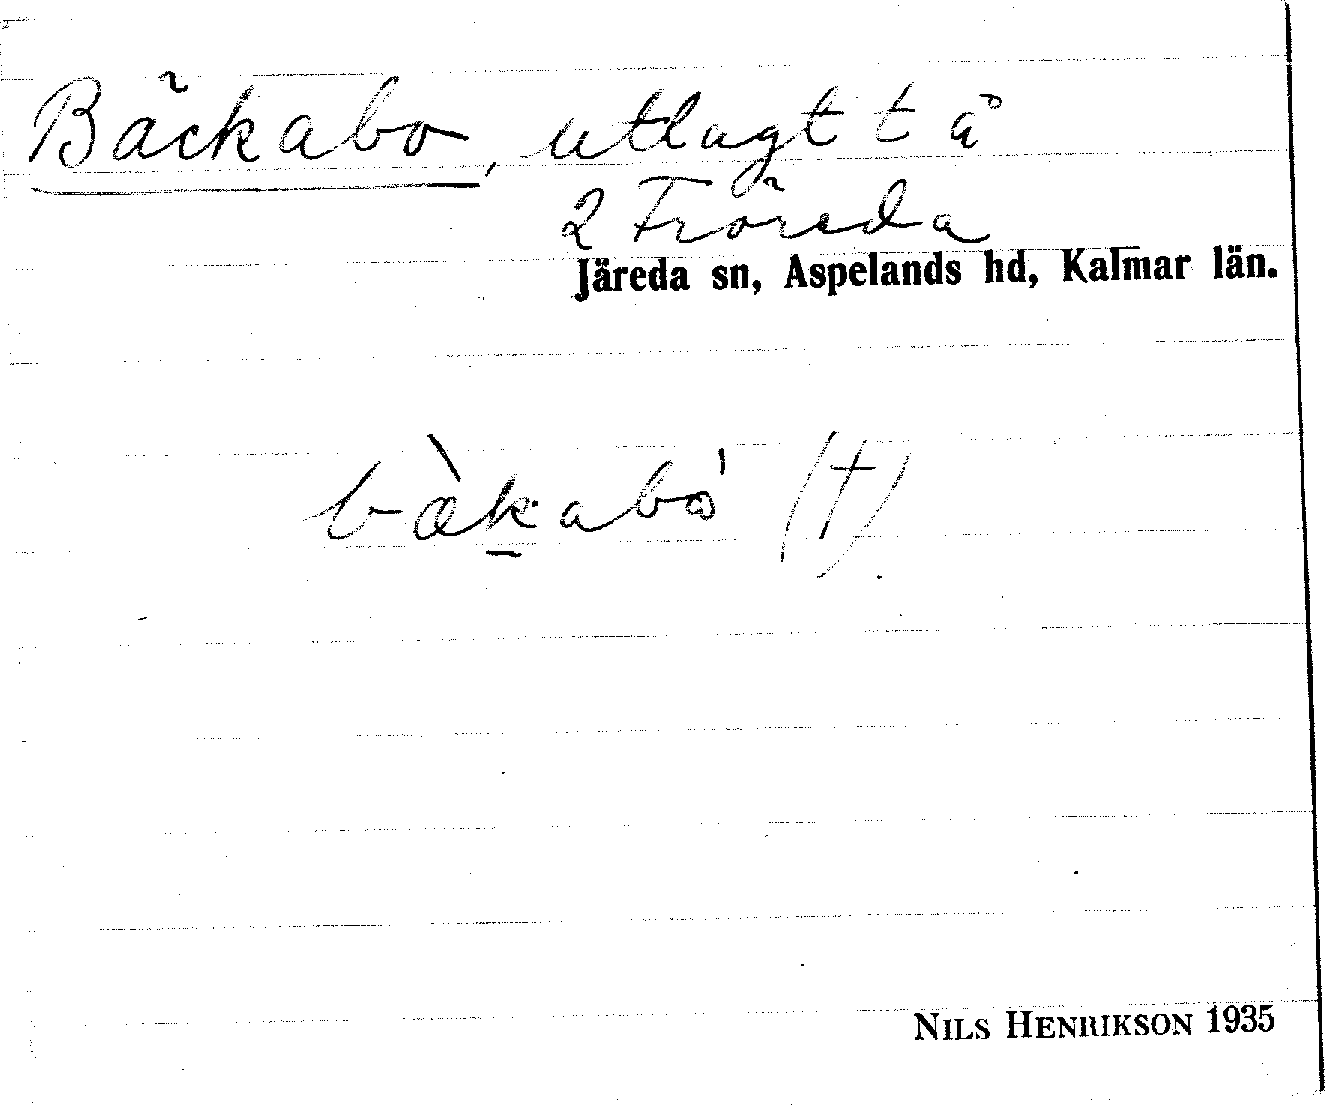 Bäckabo, utlagt t å
2 Fröreda
Järeda sn, Aspelands hd, Kalmar län.
bæ̀k̲abó (†)
NILS HENRIKSON 1935